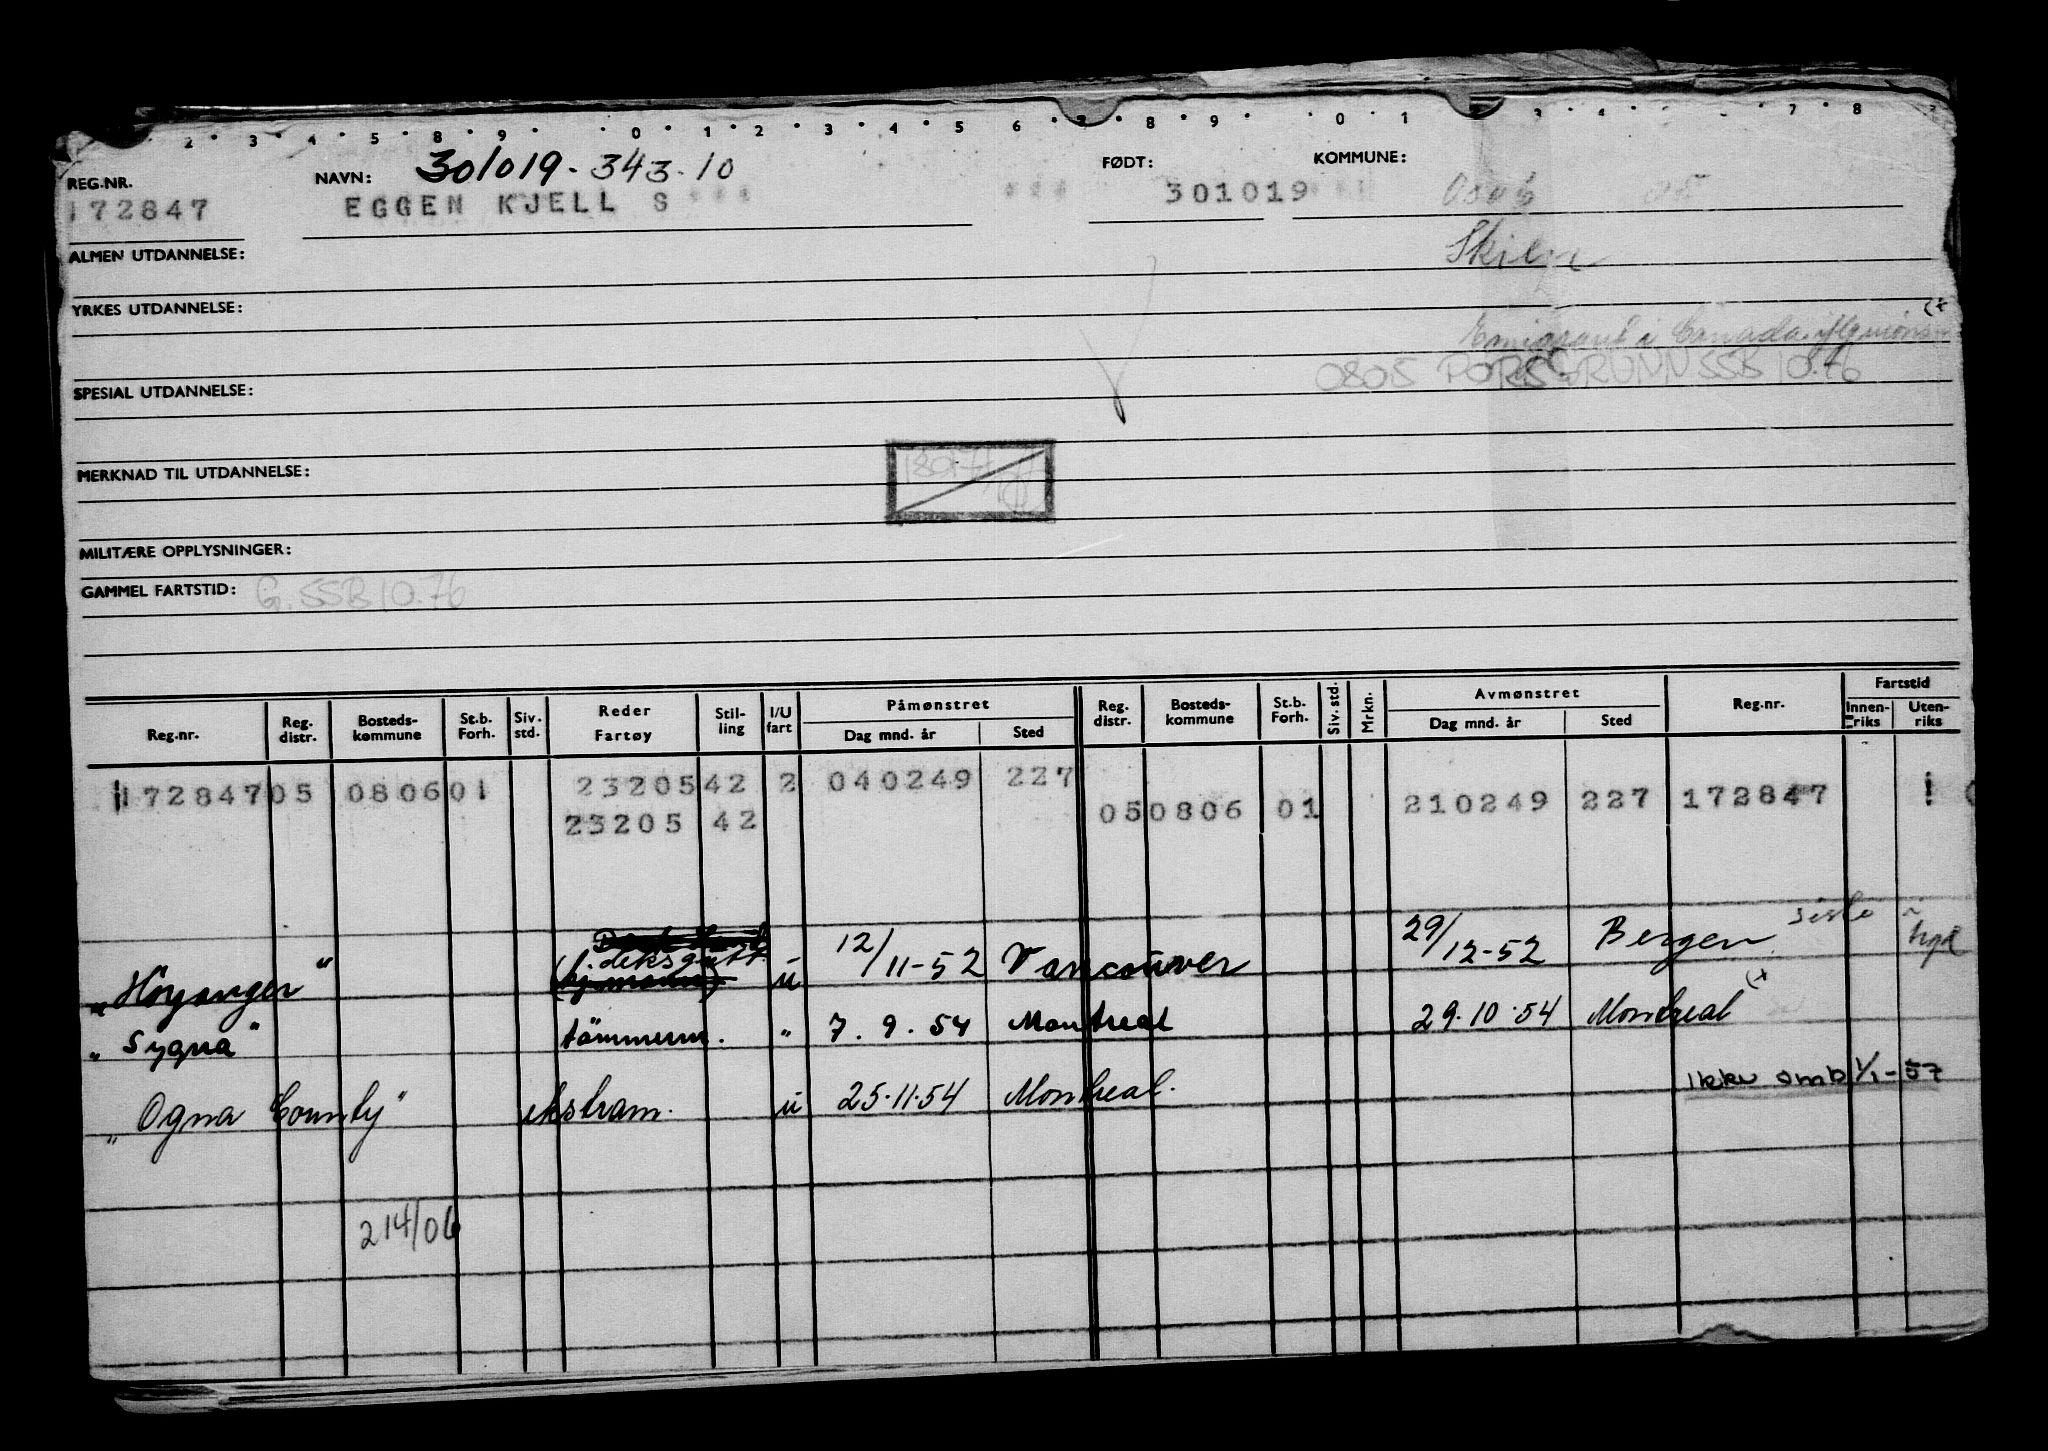 2 3 4 5 8 9 0 1 2 3 4 5 6 7 8 9 0 1 2 3 4 7 8
REG.NR. NAVN: 301019-343.10 FØDT: KOMMUNE:
172847 EGGEN KJELL S *** *** 301019
ALMEN UTDANNELSE: Skien
YRKES UTDANNELSE: (+
Emigrant i Canada
0805 PORSGRUNN SSB 10.76
SPESIAL UTDANNELSE:
MERKNAD TIL UTDANNELSE:
MILITÆRE OPPLYSNINGER:
GAMMEL FARTSTID: G. SSB 10.76
Reg.nr. Reg. distr. Bosteds-kommune St.b. Forh. Siv. std. Reder Fartøy Stil-ling I/U fart Påmønstret Dag mnd. år Sted Reg. distr. Bosteds-kommune St.b. Forh. Siv. std. Mrkn. Avmønstret Dag mnd. år Sted Reg.nr. Fartstid Innen-riks Uten-riks
172847 05 0806 01 23205 42 2 040249 227
23205 42 05 0806 01 210249 227 172847 1
„Höyanger" deksgutt u 12/11-52 Vancouver 29/12-52 Bergen siste
„Sygna" tömmerm. " 7.9.54 Montreal 29.10.54 Montreal (+
„Ogna County" ekstram. u 25.11.54 Montreal. Ikke omb 1/1-57
214/06